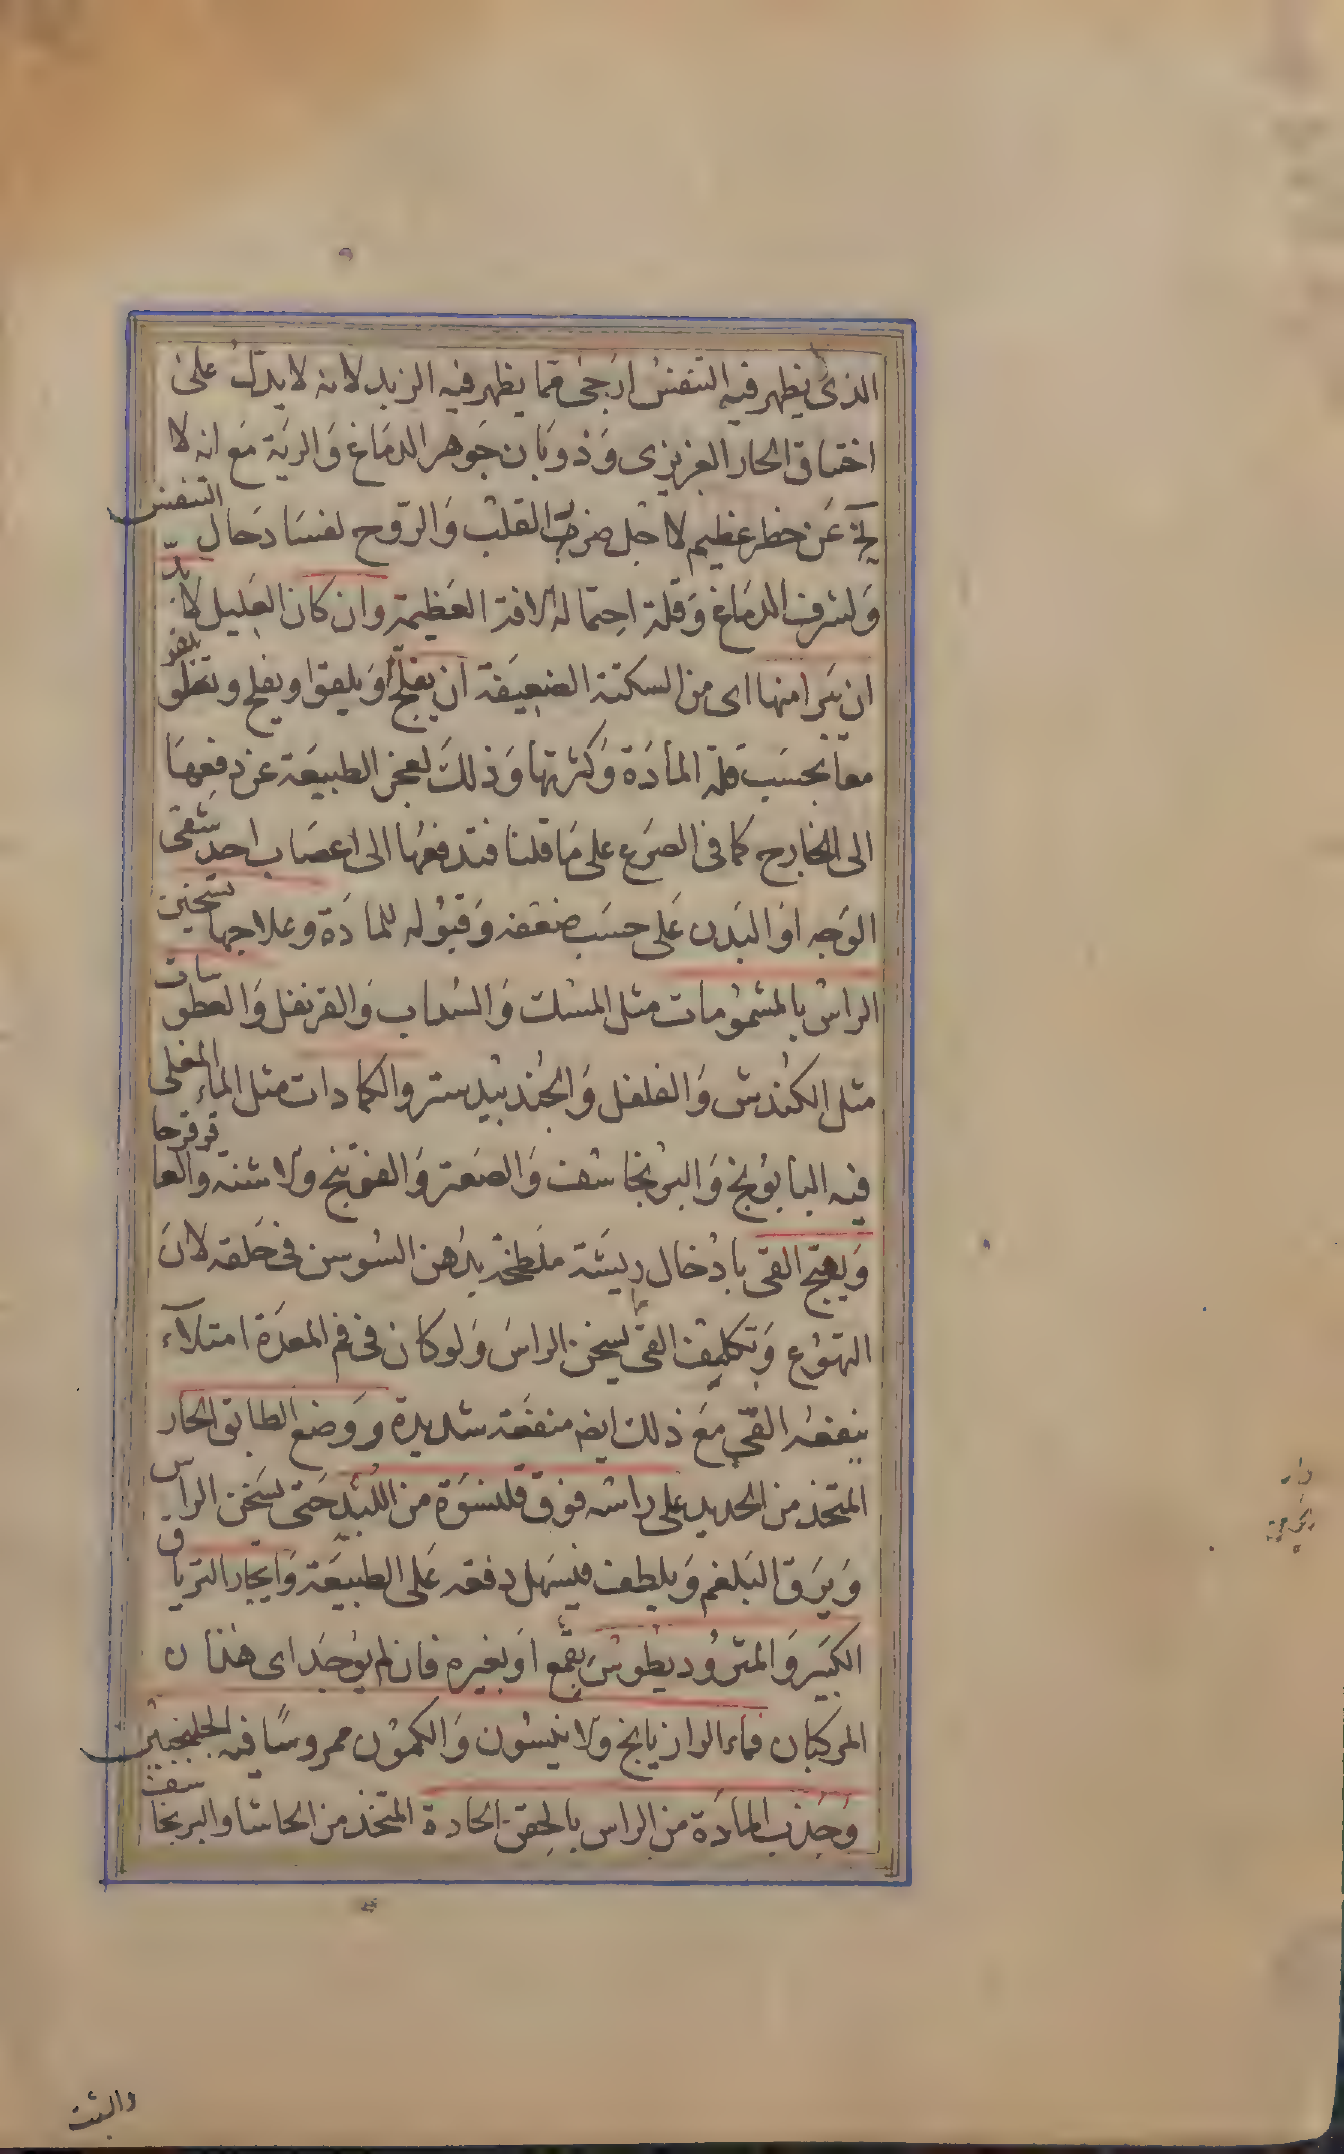 الذى يظهر فيه التنفس ارجى مما يظهر فيه الزبد لانه لا يدل على
اختناق الحار الغريزى وذوبان جوهر الدماغ والرية مع انه لا
يخ عن خطر عظيم لاجل ضرر القلب والروح لفساد حال التنفس
ولشرف الدماغ وقلة احتماله الافة العظيمة وان كان العليل لا بد
ان يبرا منها اى من السكتة الضعيفة ان يفلج او يلقوا ويفلج و يلقو
معا بحسب قلة المادة وكثرتها وذلك لعجز الطبيعة عن دفعها
الى الخارج كما فى الصرع على ما قلنا فتدفعها الى اعصاب احد شقى
الوجه او البدن على حسب ضعفه وقبوله للمادة وعلاجها تسخين
الراس بالمشمومات مثل المسك والسداب والقرنفل والعطوسات
مثل الكندش والفلفل والجندبيدستر والكمادات مثل الماء المغلى
فيه البابونج والبرنجاسف والصعتر والفوتنج والاشنة والعاقرقرحا
ويهيج القى بادخال ريشة ملطخة بدهن السوسن فى حلقه لان
التهوع وتكليف القى يسخن الراس ولو كان فى فم المعدة امتلآء
ينفعه القى مع ذلك ايضم منفعة شديدة ووضع الطابق الحار
المتخذ من الحديد على راسه فوق قلنسوة من اللبد حتى يسخن الراس
ويرق البلغم ويلطف فيسهل دفعه على الطبيعة وايجار الترياق
الكبير والمثروديطوس بقمع او بغيره فان لم يوجد اى هذان
المركبان فماء الرازيانج والانيسون والكمون ممروسا فيه الجلنجبين
وجذب المادة من الراس بالحقن الحادة المتخذ من الحاشا والبرنجاسف
والشبت